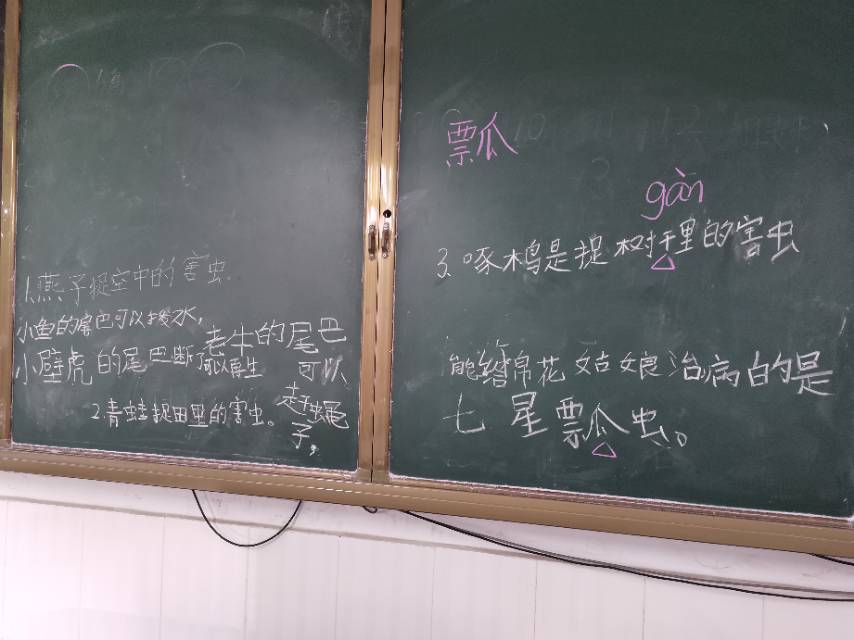 1.燕子捉空中的害虫.
小鱼的尾巴可以拨水,
小壁虎的尾巴断了可以再生
老牛的尾巴
可以
赶蝇
子,
2.青蛙捉田里的害虫。
瓢
gàn
3.啄木鸟是捉树干里的害虫
能给棉花姑娘治病的是
七星瓢虫。